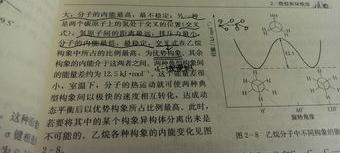 2. 烷烃和环烷烃
大,分子的内能最高,最不稳定;另一种
是两个碳原子上的氢处于交叉的位置(交叉
式),氢原子间的距离最远,排斥力最小,
分子的内能最低,最稳定。交叉式在乙烷
构象中所占的比例最高,为优势构象。其余
构象的内能介于这两者之间。两种典型构象间
的能量差约为12.5 kJ·mol⁻¹,这个能量差很
小,室温下,分子的热运动就可使两种典
型构象间以极快的速度相互转化,达成动
态平衡后以优势构象所占比例最高。此时,
若要将其中的某个构象异构体分离出来是
不可能的。乙烷各种构象的内能变化见图
2-8。
12.5
0°
60°
120°
旋转角度
图2-8 乙烷分子中不同构象的能
这种
σ键